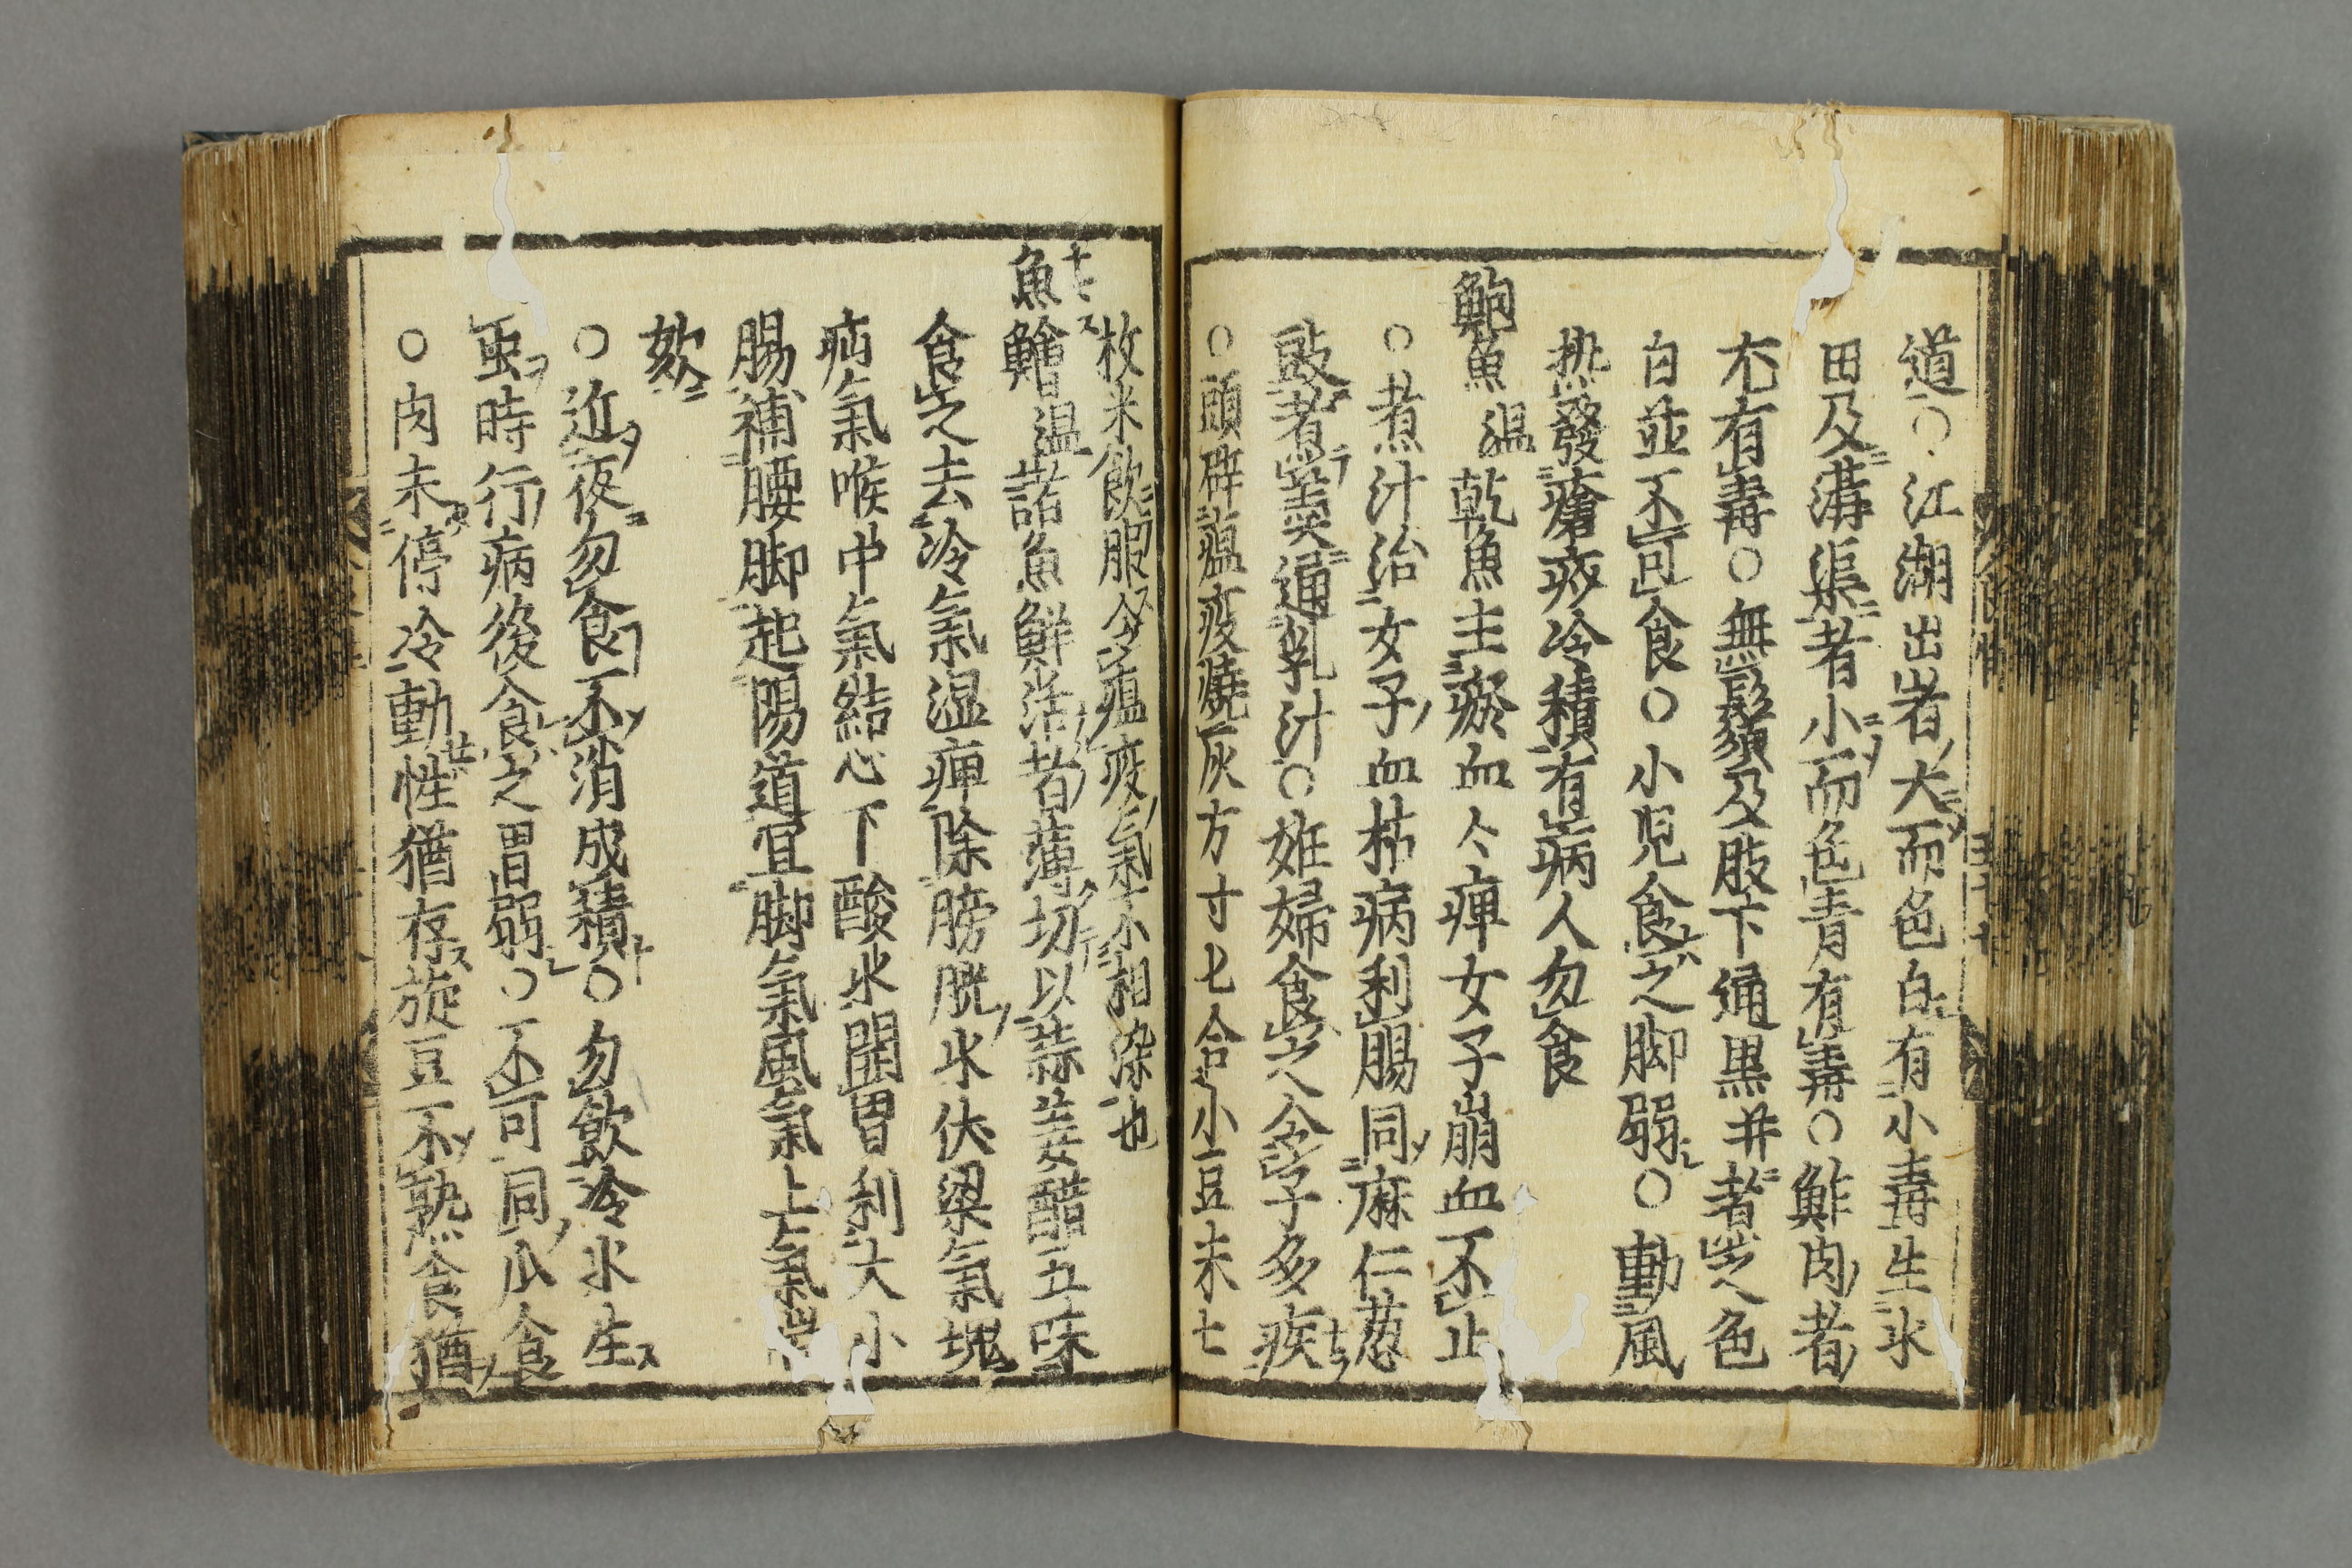 道○江湖出者大而色白有小毒生水
田及溝渠者小而色青有毒○鮓肉者
尤有毒○無鬚及腹下通黒并煮之色
白並不可食○小児食之脚弱○動風
热發瘡疥冷積有病人勿食
鮑魚温 乾魚主瘀血々痺女子崩血不止
○煮汁治女子血枯病利腸同麻仁葱
豉煮羹通乳汁○妊婦食之令子多疾
○頭辟瘟疫燒灰方寸匕合小豆末七
枚米飲服令瘟疫氣不相染也
魚鱠温 諸魚鮮活者薄切以蒜姜醋五味
食之去冷氣湿痺除膀胱水伏梁氣塊
疝氣喉中氣結心下酸水開胃利大小
腸補腰脚起陽道宜脚氣風氣上氣喘
欬
○近夜勿食不消成積○勿飲冷水生
虫時行病後食之胃弱○不可同瓜食
○肉未停冷動性猶存旋豆不熟食猶